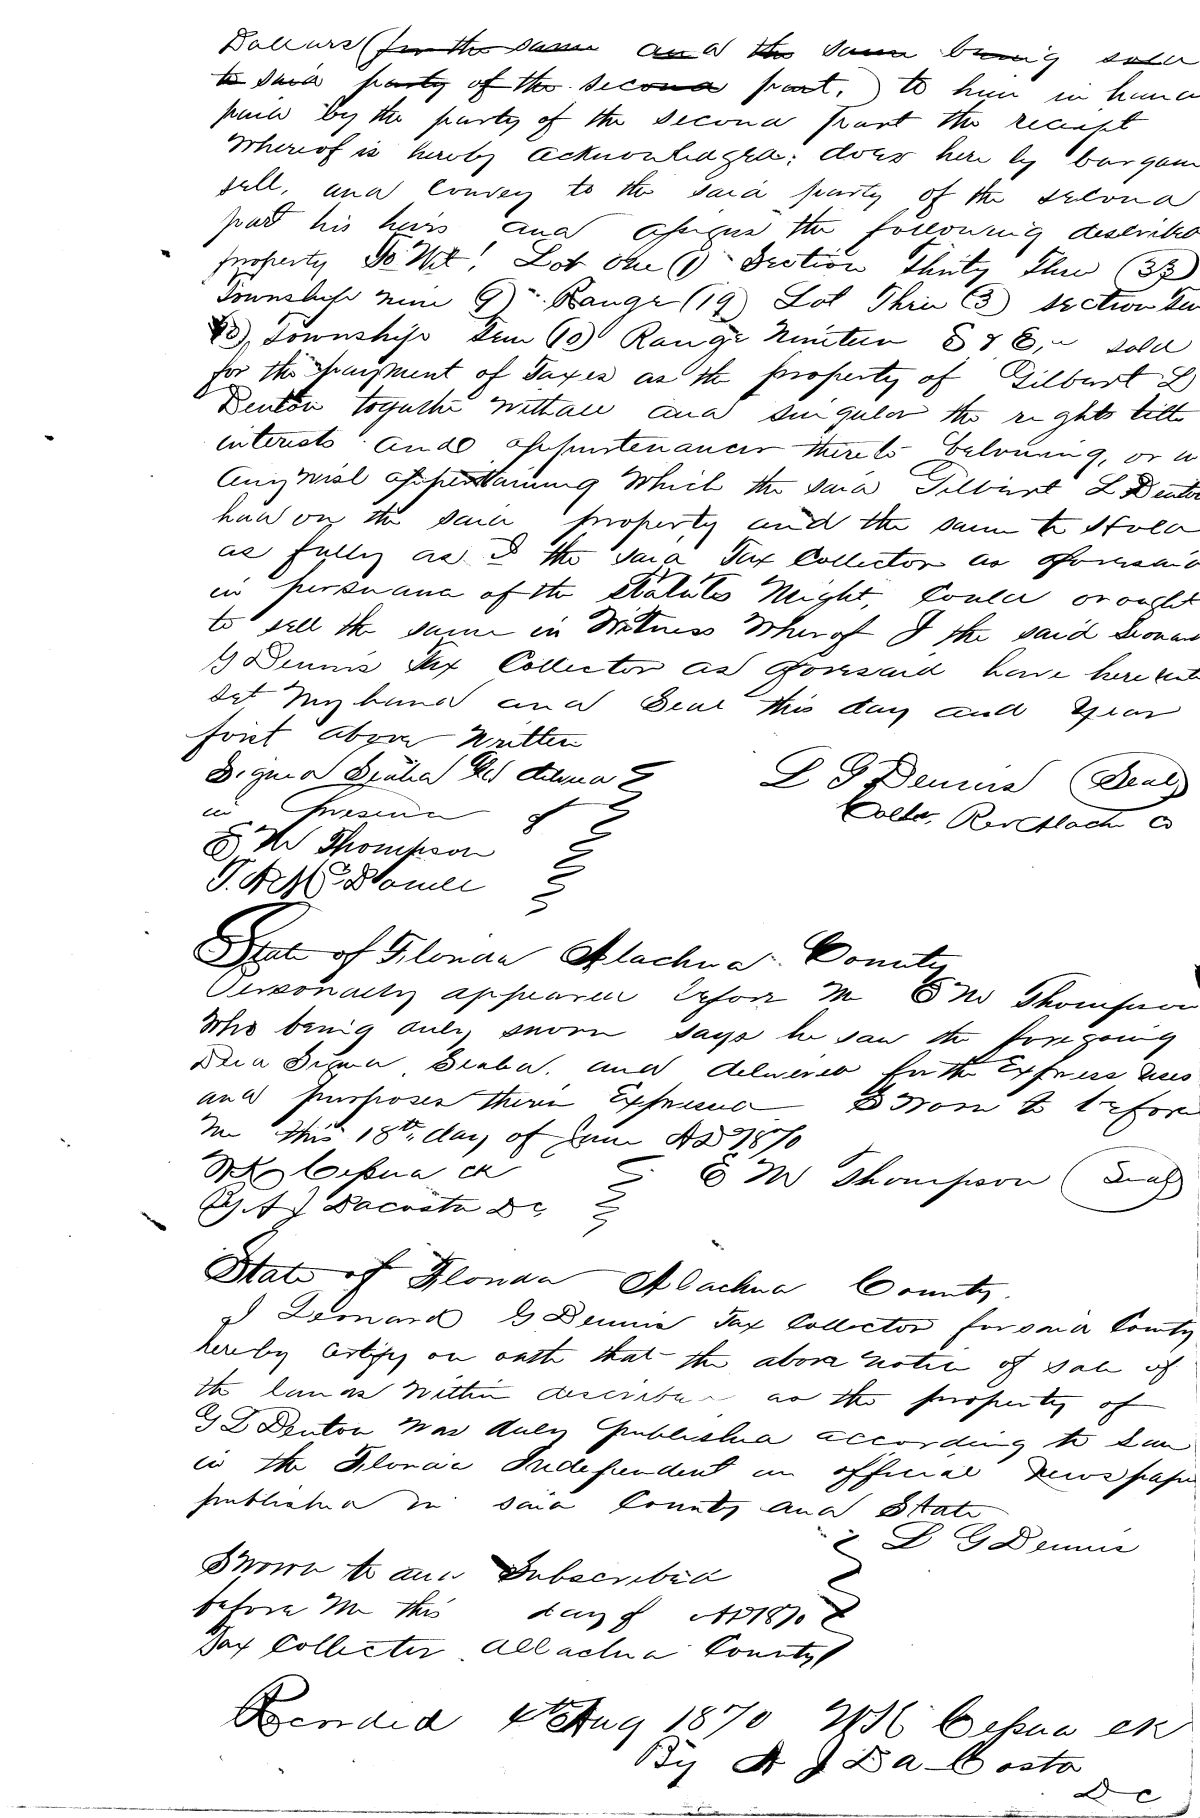 Dollars (for the same and the same being sold
to said party of the second part.) to him in hand
paid by the party of the second part the receipt
Whereof is hereby acknowledged; does here by bargain
sell, and Convey to the said party of the second
part his heirs and assigns the following described
property To Wit! Lot One (1) Section Thirty Three (33)
Township nine 9) Range (19) Lot Three (3) section Ten
(10), Township Ten (10) Range Nineteen S & E, sold
for the payment of Taxes as the property of Gilbert L
Denton togather withall and singular the rights title
interests and appurtenances thereto belonning, or in
Any wise appertaining Which the said Gilbert L Denton
had on the said property and the same to Hold
as fully as I the said Tax Collector as aforesaid
in persuance of the Statutes Might, Could or ought
to sell the same in Witness Wherof I the said Leonard
G Dennis Tax Collector as aforesaid have here unto
set My hand and Seal this day and Year
first above Written
Signed Sealed & delivered L G Dennis (Seal)
in Presence of Collr. Rev Alach Co
E W Thompson
T. A McDonell
State of Florida Alachua County
Personally appeared before Me E W Thompson
Who being duly sworn says he saw the foregoing
Deed Signed Sealed. and delivered for the Express uses
and purposes therein Expressed Sworn to before
Me this 18th. day of June AD 1870
W K Cessna Clk E W Thompson (Seal)
By A J Dacosta DC,
State of Florida Alachua County.
I Leonard G Dennis Tax Collector for said County
hereby certify on oath that the above notice of sale of
the lands within described as the property of
G L Denton Was duly published according to Law
in the Florida Independent an official Newspaper
published in said County and State
L G Dennis
Sworn to and Subscribed
before Me this day of AD 1870
Tax Collecter Allachua County
Recorded 4th Aug 1870 W K Cessna Clk
By A J Da Costa
D C